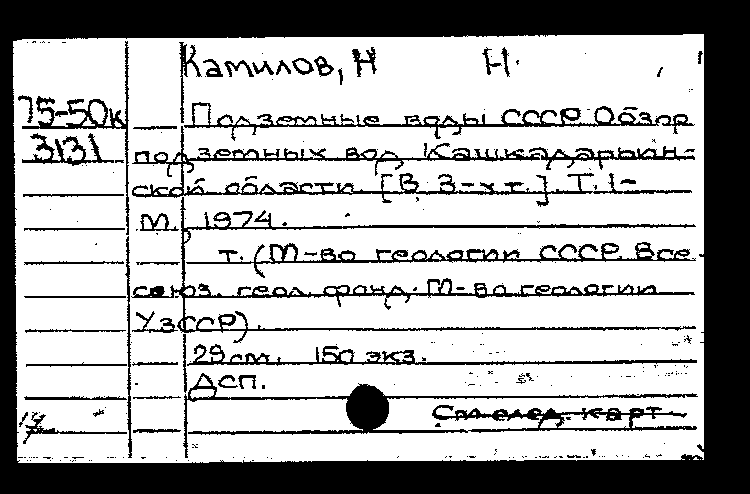 Камилов, Н Н.
75-50к Подземные воды СССР Обзор
3131 подземных вод Кашкадарьин-
ской области. [В 3-х т.]. Т. 1-
М., 1974.
т. (М-во геологии СССР. Все-
союз. геол. фонд, М-во геологии
УзССР).
29 см. 150 экз.
ДСП.
См. след. карт